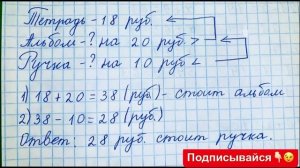 Тетрадь - 18 руб.
Альбом - ? на 20 руб >
Ручка - ? на 10 руб <
1) 18 + 20 = 38 (руб) - стоит альбом
2) 38 - 10 = 28 (руб.)
Ответ: 28 руб. стоит ручка.
Подписывайся